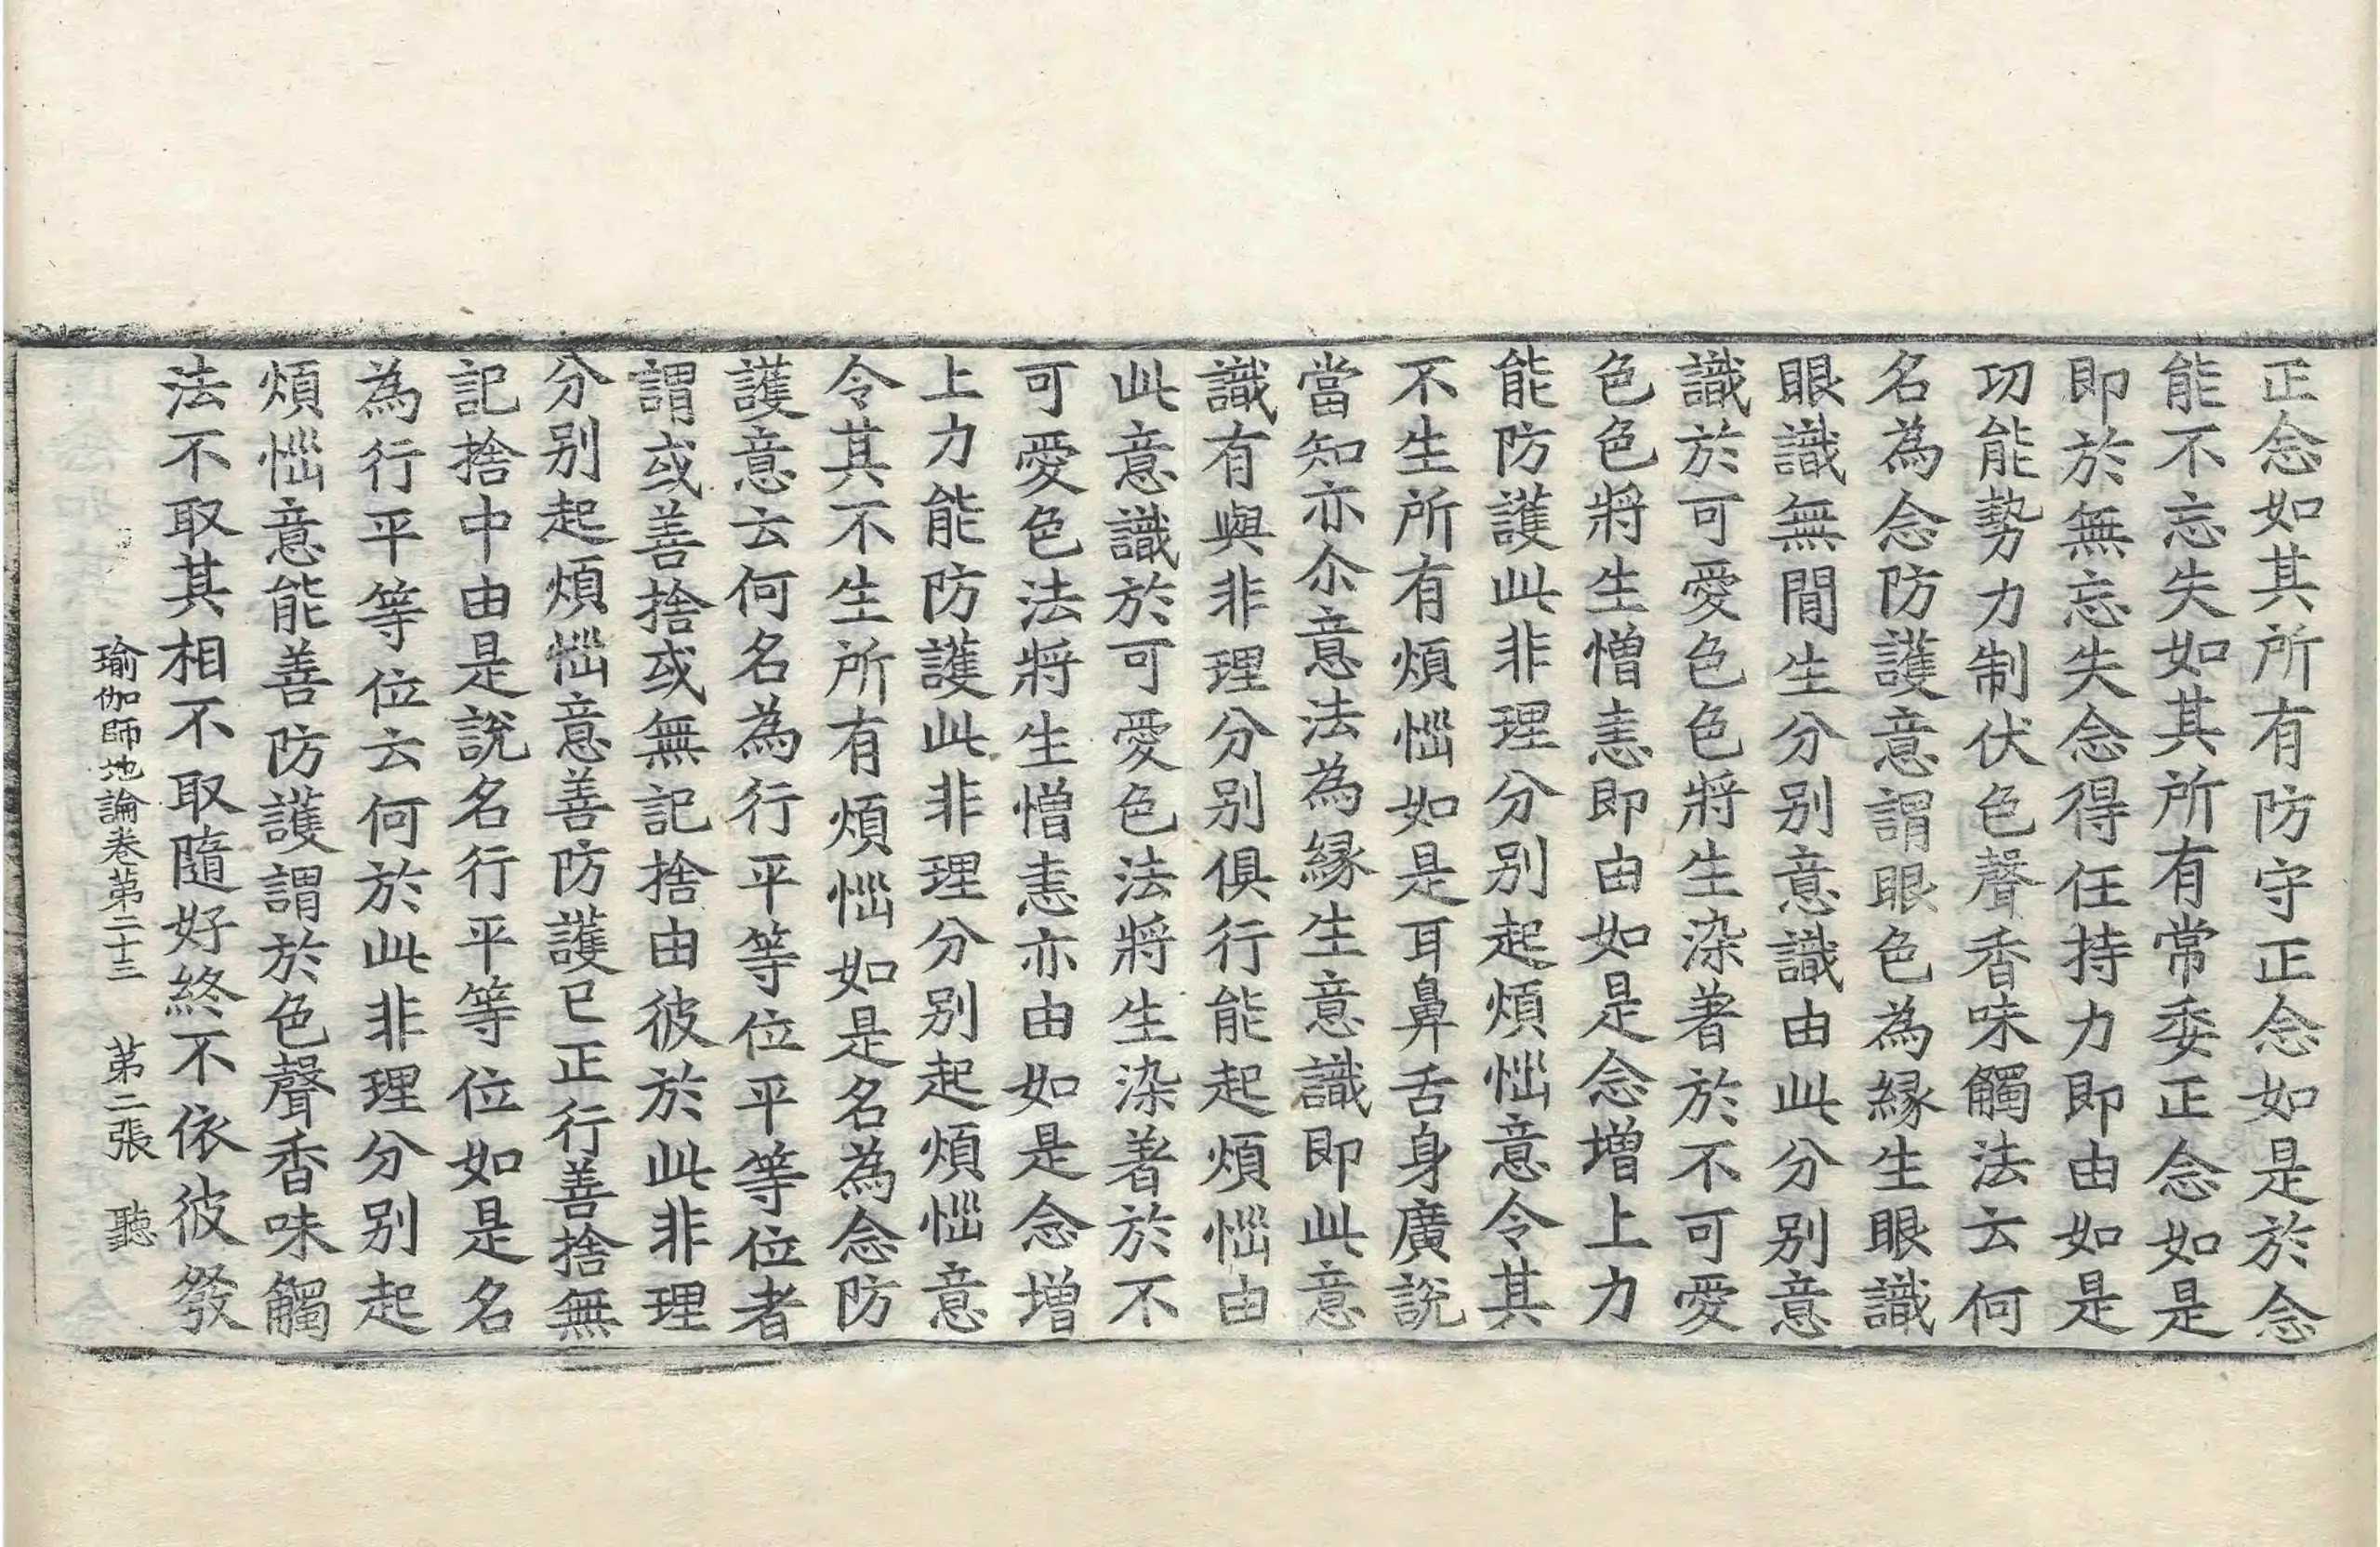 正念如其所有防守正念如是於念
能不忘失如其所有常委正念如是
即於無忘失念得任持力即由如是
功能勢力制伏色聲香味觸法云何
名為念防護意謂眼色為縁生眼識
眼識無間生分别意識由此分别意
識於可愛色色將生染著於不可愛
色色將生憎恚即由如是念增上力
能防護此非理分别起煩惱意令其
不生所有煩惱如是耳鼻舌身廣說
當知亦尒意法為縁生意識即此意
識有與非理分别俱行能起煩惱由
此意識於可愛色法將生染著於不
可愛色法將生憎恚亦由如是念增
上力能防護此非理分别起煩惱意
令其不生所有煩惱如是名為念防
護意云何名為行平等位平等位者
謂或善捨或無記捨由彼於此非理
分别起煩惱意善防護已正行善捨無
記捨中由是說名行平等位如是名
為行平等位云何於此非理分别起
煩惱意能善防護謂於色聲香味觸
法不取其相不取隨好終不依彼發
瑜伽師地論卷苐二十三　苐二張　聽